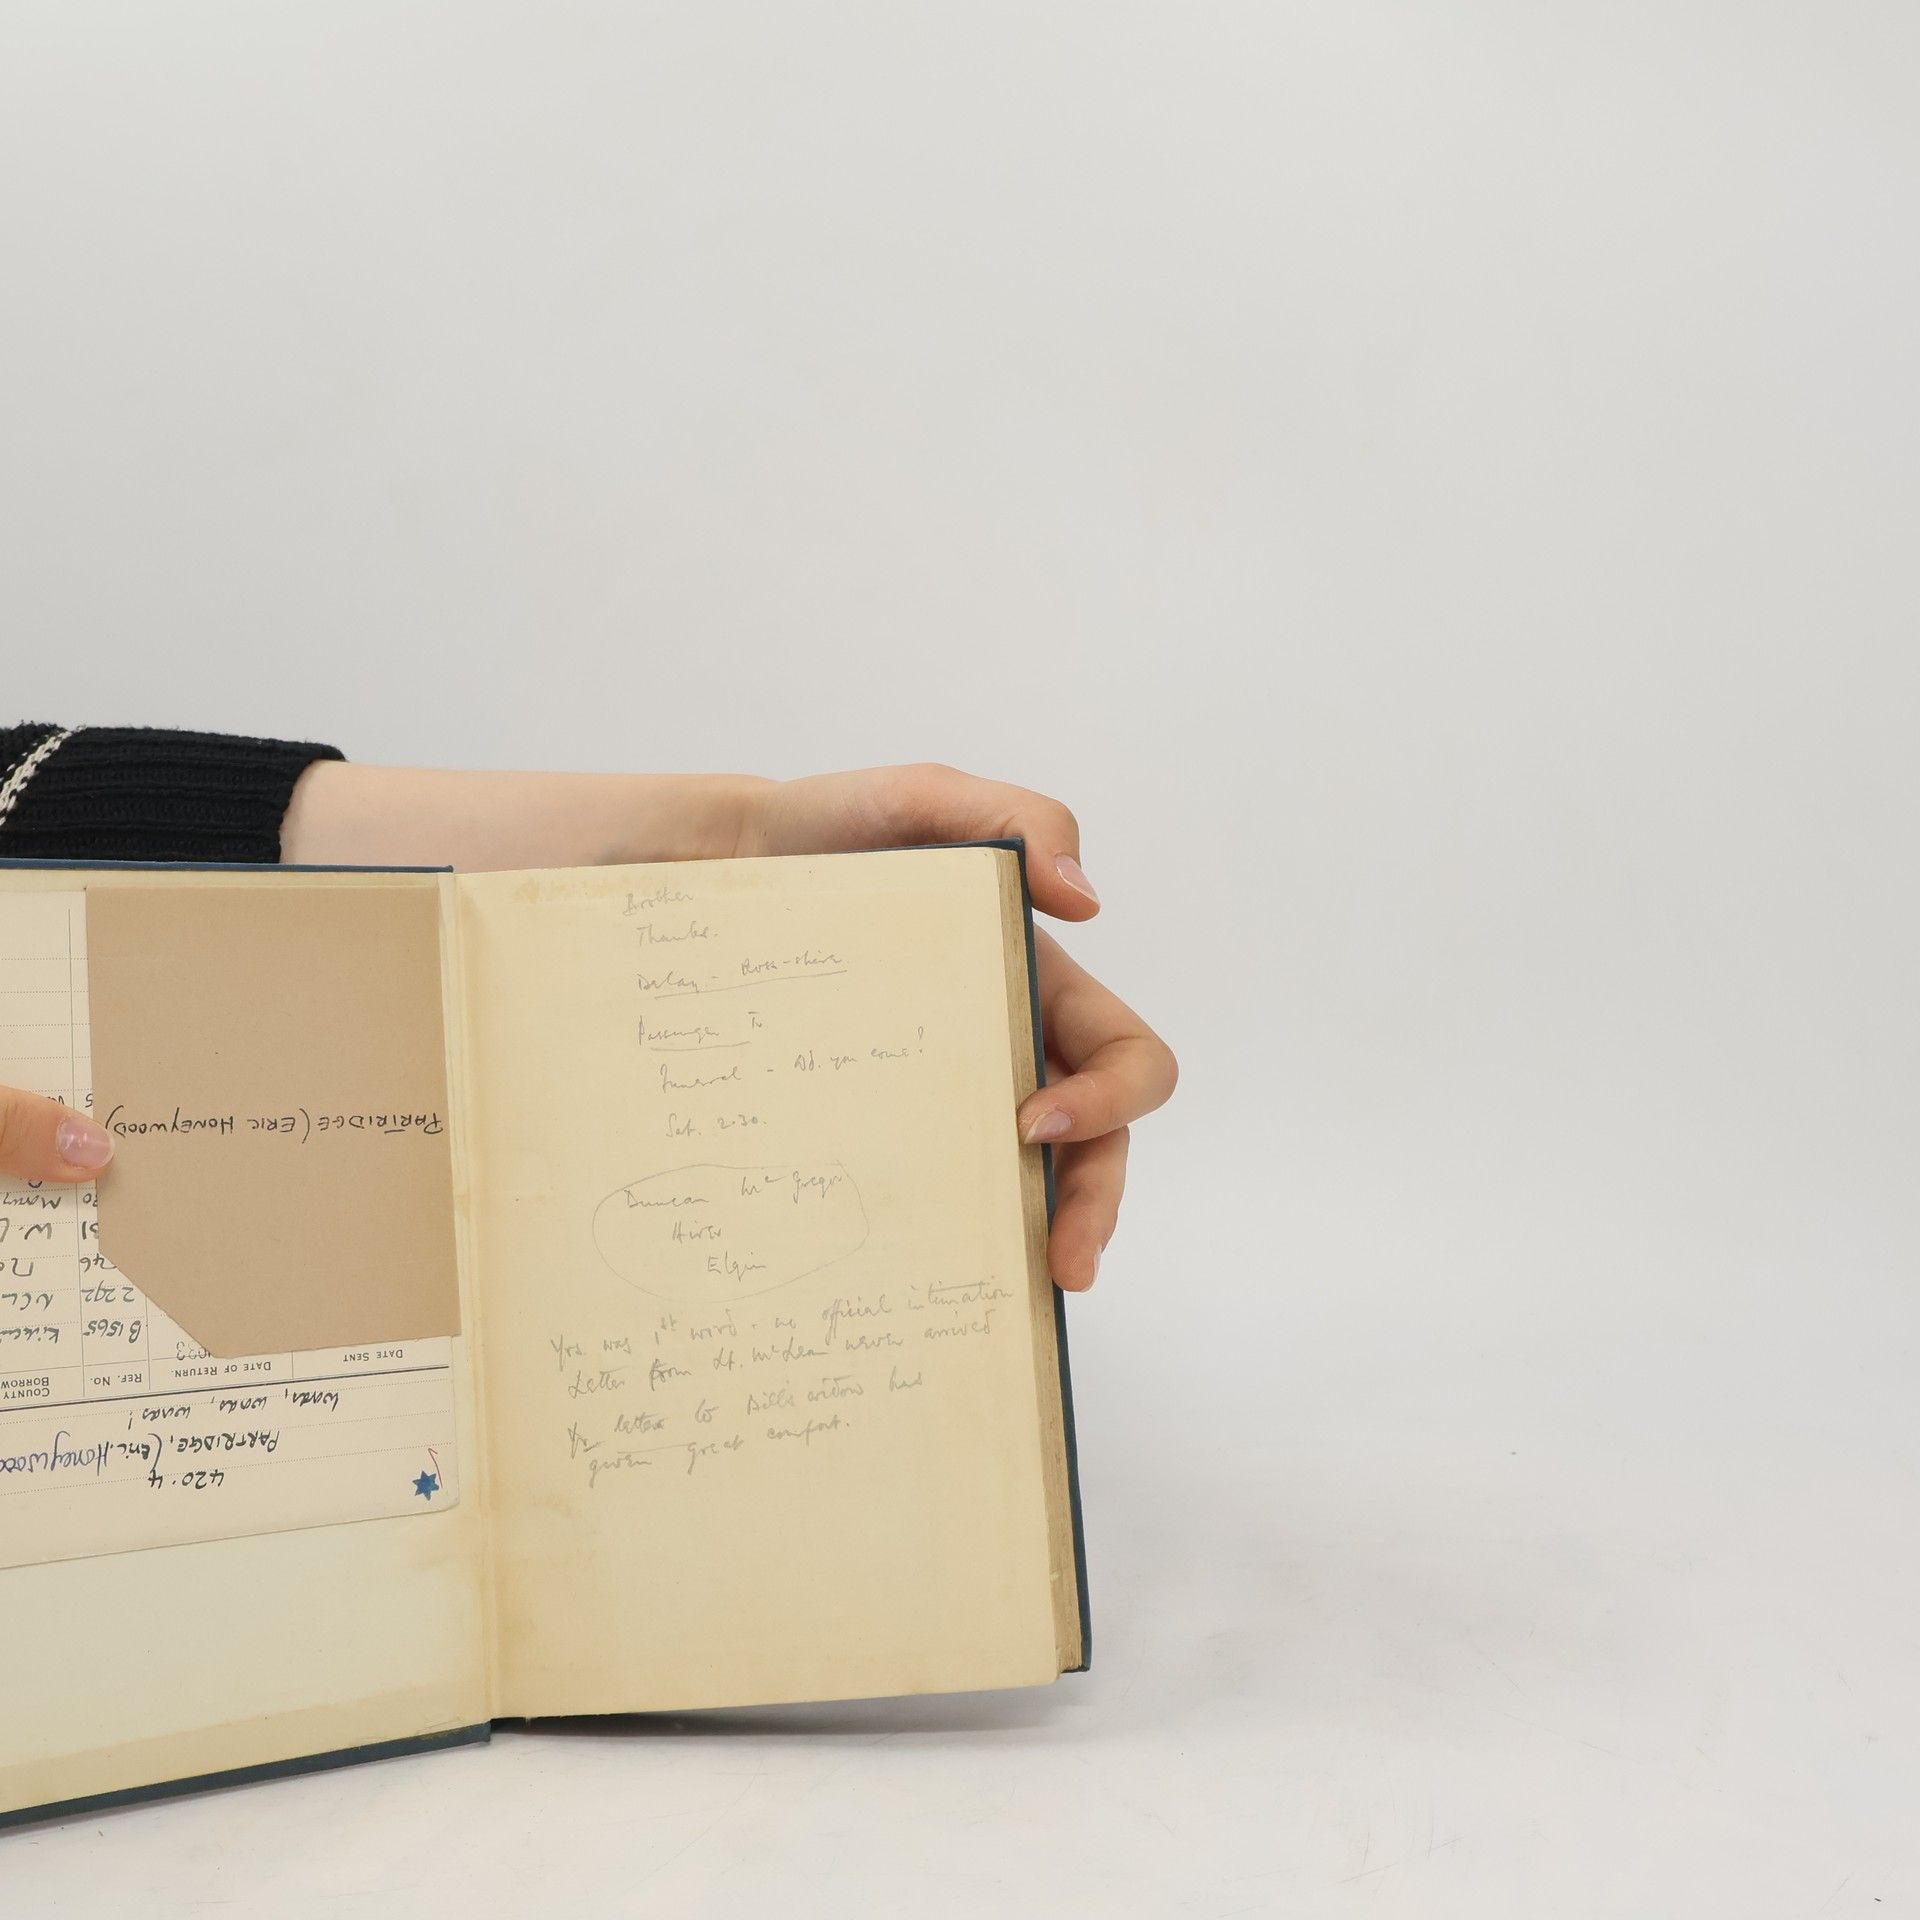 Brother
Thanks.
Delay - Ross-shire.
Passenger Tr
Funeral - Cd. you come?
Sat. 2.30.
Duncan McGregor
Elgin
Yrs was 1st word - no official intimation
Letter from Lt. McLean never arrived
Yr letter to Bill's widow has
given great comfort.
PARTRIDGE (ERIC HONEYWOOD)
420.4
PARTRIDGE, (Eric. Honeywood
Words, words, words!
DATE SENT
DATE OF RETURN.
REF. No.
COUNTY
BORROW
B1565
2292
NCL